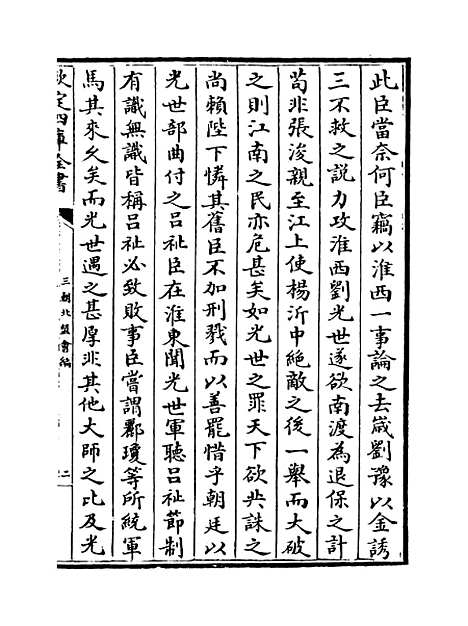 此臣當奈何臣竊以淮西一事論之去歲劉豫以金誘
三不救之説力攻淮西劉光世遂欲南渡為退保之計
茍非張浚親至江上使楊沂中絶敵之後一舉而大破
之則江南之民亦危甚矣如光世之罪天下欲共誅之
尚賴陛下憐其舊臣不加刑戮而以善罷惜乎朝廷以
光世部曲付之吕祉臣在淮東聞光世軍聽吕祉節制
有識無識皆稱吕祉必致敗事臣嘗謂酈瓊等所統軍
馬其來久矣而光世遇之甚厚非其他大師之比及光
欽定四庫全書
三朝北盟會編
二